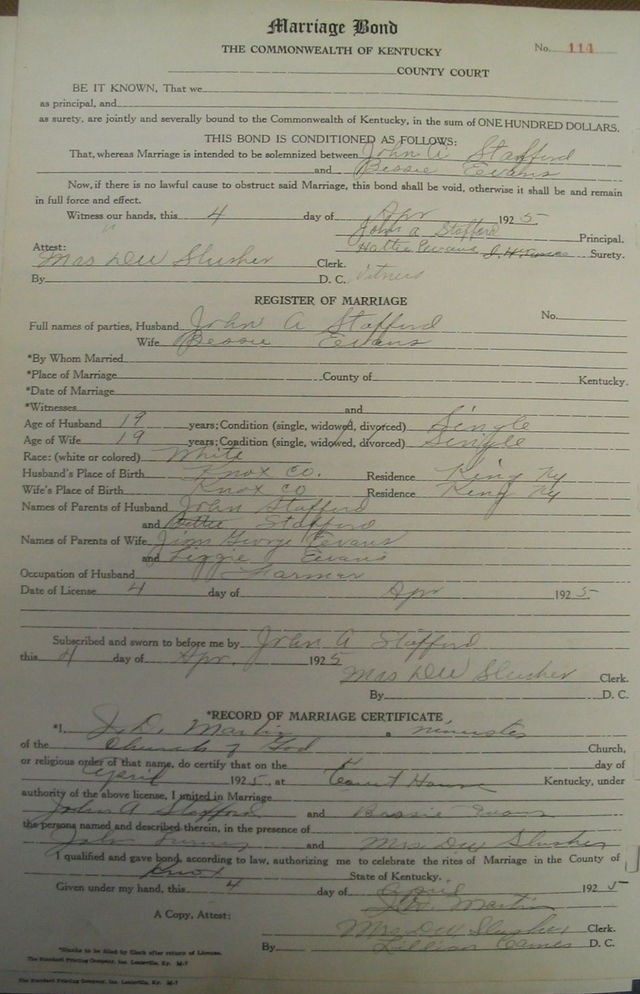 Marriage Bond
THE COMMONWEALTH OF KENTUCKY
No. 111
COUNTY COURT
BE IT KNOWN, That we
as principal, and
as surety, are jointly and severally bound to the Commonwealth of Kentucky, in the sum of ONE HUNDRED DOLLARS.
THIS BOND IS CONDITIONED AS FOLLOWS:
That, whereas Marriage is intended to be solemnized between John A Stafford
and Bessie Evans
Now, if there is no lawful cause to obstruct said Marriage, this bond shall be void, otherwise it shall be and remain
in full force and effect.
Witness our hands, this 4 day of Apr 1925
John A Stafford Principal.
Hattie Evans Surety.
Attest:
Mrs DW Slusher Clerk.
By D. C.
REGISTER OF MARRIAGE
No.
Full names of parties, Husband John A Stafford
Wife Bessie Evans
*By Whom Married
*Place of Marriage County of Kentucky.
*Date of Marriage
*Witnesses and
Age of Husband 19 years; Condition (single, widowed, divorced) Single
Age of Wife 19 years; Condition (single, widowed, divorced) Single
Race: (white or colored) White
Husband's Place of Birth Knox Co. Residence King Ky
Wife's Place of Birth Knox Co Residence King Ky
Names of Parents of Husband John Stafford
and Stafford
Names of Parents of Wife Jim George Evans
and Lizzie Evans
Occupation of Husband Farmer
Date of License 4 day of Apr 1925
Subscribed and sworn to before me by John A Stafford
this 4 day of Apr. 1925
Mrs DW Slusher Clerk.
By D. C.
*RECORD OF MARRIAGE CERTIFICATE
*I, J. D. Martin a minister
of the Church of God Church,
or religious order of that name, do certify that on the 4 day of
April 1925, at Court House Kentucky, under
authority of the above license, I united in Marriage
John A Stafford and Bessie Evans
the persons named and described therein, in the presence of
John and Mrs DW Slusher
I qualified and gave bond, according to law, authorizing me to celebrate the rites of Marriage in the County of
Knox State of Kentucky.
Given under my hand, this 4 day of April 1925
J. D. Martin
A Copy, Attest:
Mrs DW Slusher Clerk.
By Lillian D. C.
*Blanks to be filed by Clerk after return of License.
The Standard Printing Company, Inc. Louisville, Ky. M-7
The Standard Printing Company, Inc. Louisville, Ky. M-7